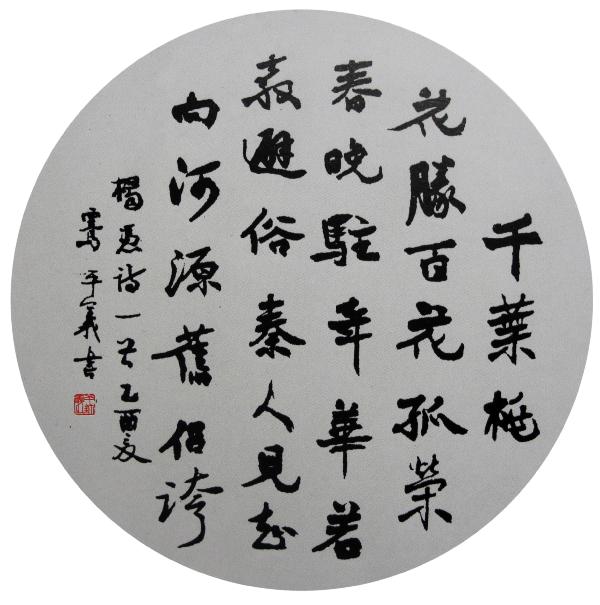 千葉桃
花勝百花孤榮
春晚駐年華若
教避俗秦人見知
向河源舊侣誇
楊憑詩一首乙酉夏
平義書